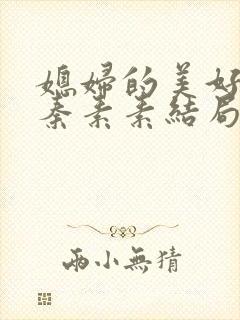 媳婦的美好
秦素素結局
兩小無猜